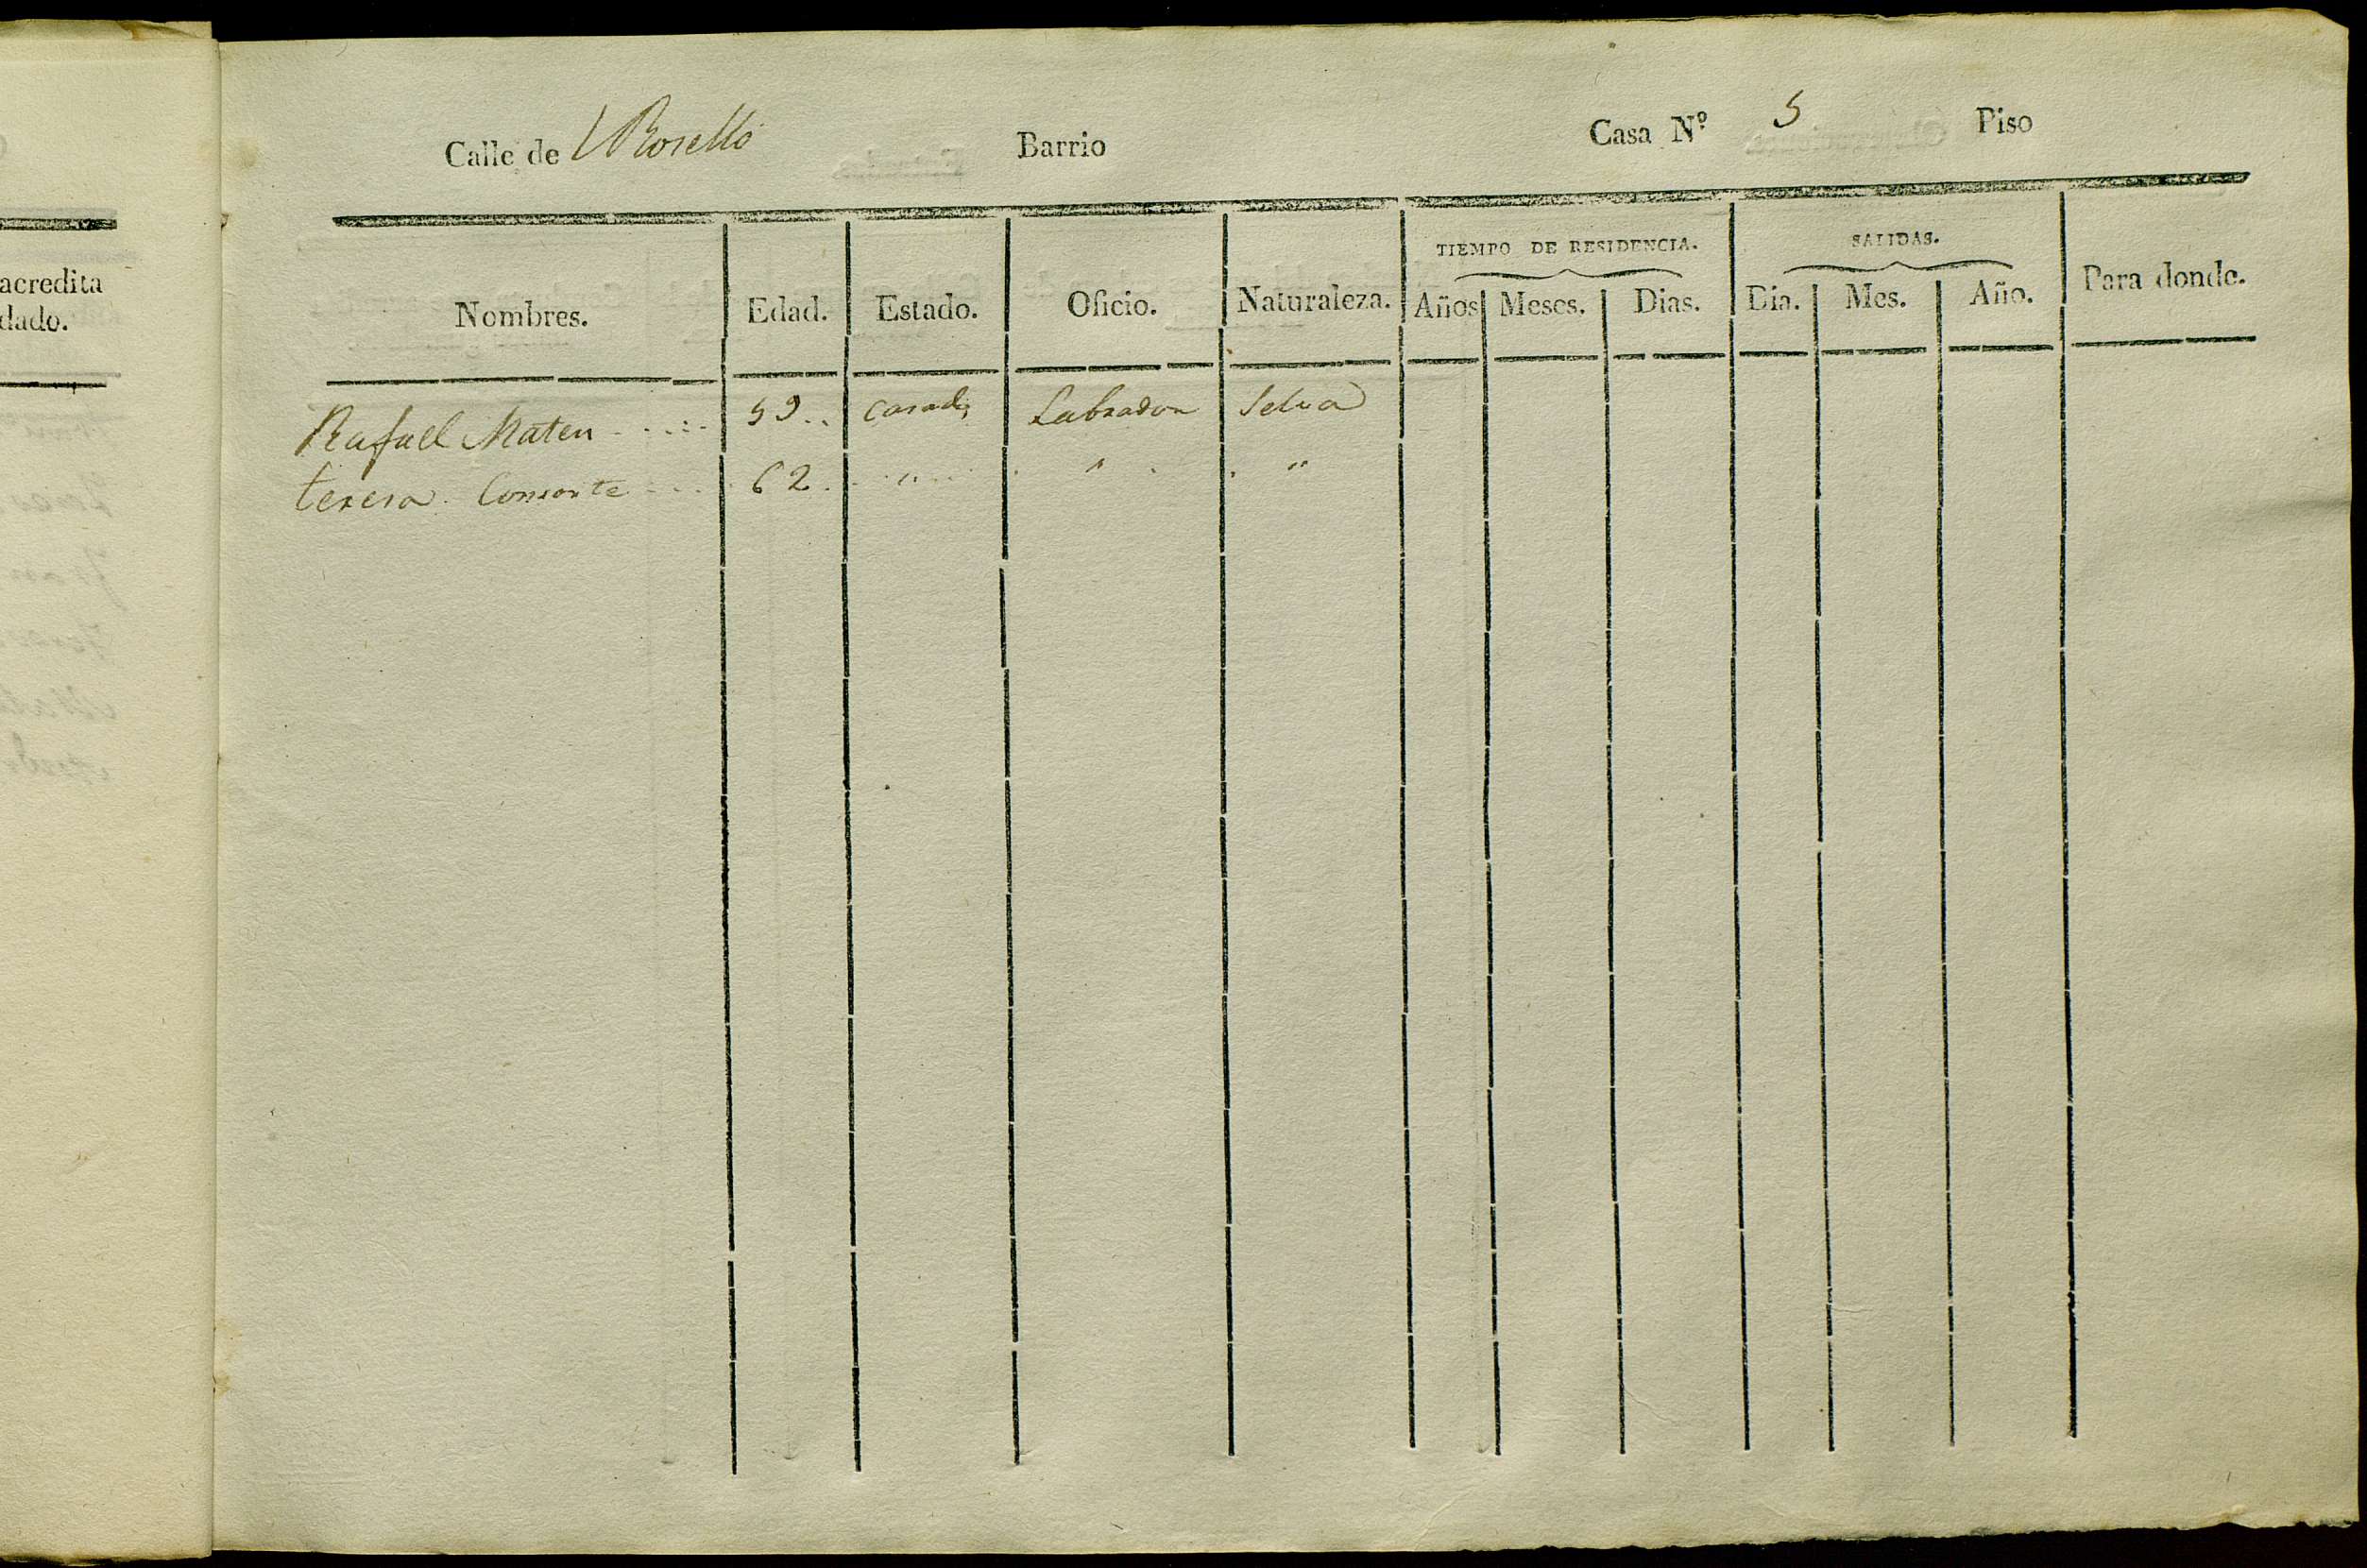 acredita
dado.
Calle de Rosello Barrio Casa Nº 5 Piso
TIEMPO DE RESIDENCIA. SALIDAS.
Nombres. Edad. Estado. Oficio. Naturaleza. Años Meses. Dias. Dia. Mes. Año. Para donde.
Rafael Mateu 59 casad Labrador Selva
teresa Consorte 62 " " "